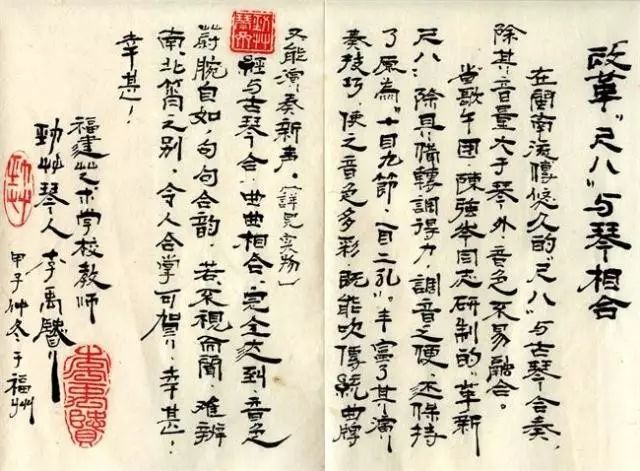 改革"尺八"与琴相合
在閩南流傳悠久的"尺八"与古琴合奏,
除其音量大于琴外,音色不易融合。
省歌午团陳強岑同志研制的"革新
尺八"除具備轉調得力,調音之便,还保持
了原為"十目九節,一目二孔"。丰富了其演
奏技巧,使之音色多彩,既能吹傳統曲牌
又能演奏新声。(詳見实物)
經与古琴合,曲曲相合,完全达到音色
自如,句句合韵,若不視而聞,难辨
南北筒之别,令人合掌可賀!幸甚!
幸甚!
福建艺术学校教师
劲艸琴人李禹賢
甲子仲冬于福州
劲艸
李禹賢